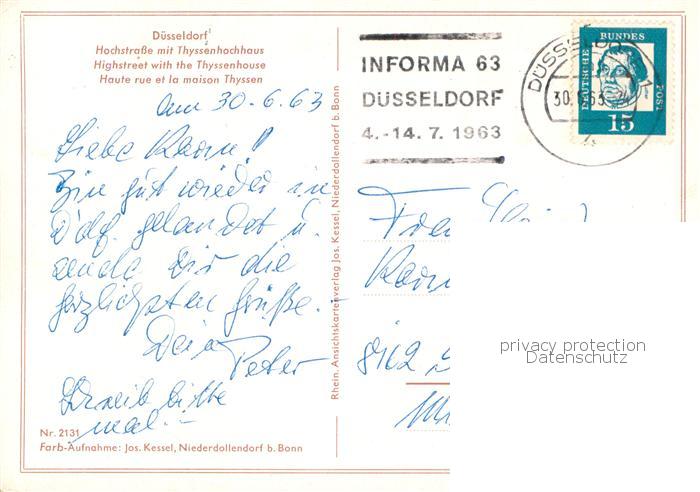 Düsseldorf
Hochstraße mit Thyssenhochhaus
Highstreet with the Thyssenhouse
Haute rue et la maison Thyssen
am 30.6.63
Liebe Karin!
Bin gut wieder in
D'df. gelandet u.
sende Dir die
herzlichsten Grüße.
Dein
Peter
Schreib bitte
mal.
Nr. 2131
Farb-Aufnahme: Jos. Kessel, Niederdollendorf b. Bonn
Rhein. Ansichtskartenverlag Jos. Kessel, Niederdollendorf b. Bonn
INFORMA 63
DÜSSELDORF
4.-14. 7. 1963
DÜSSELDO
30.6.63
DEUTSCHE
BUNDES
POST
15
8102
privacy protection
Datenschutz